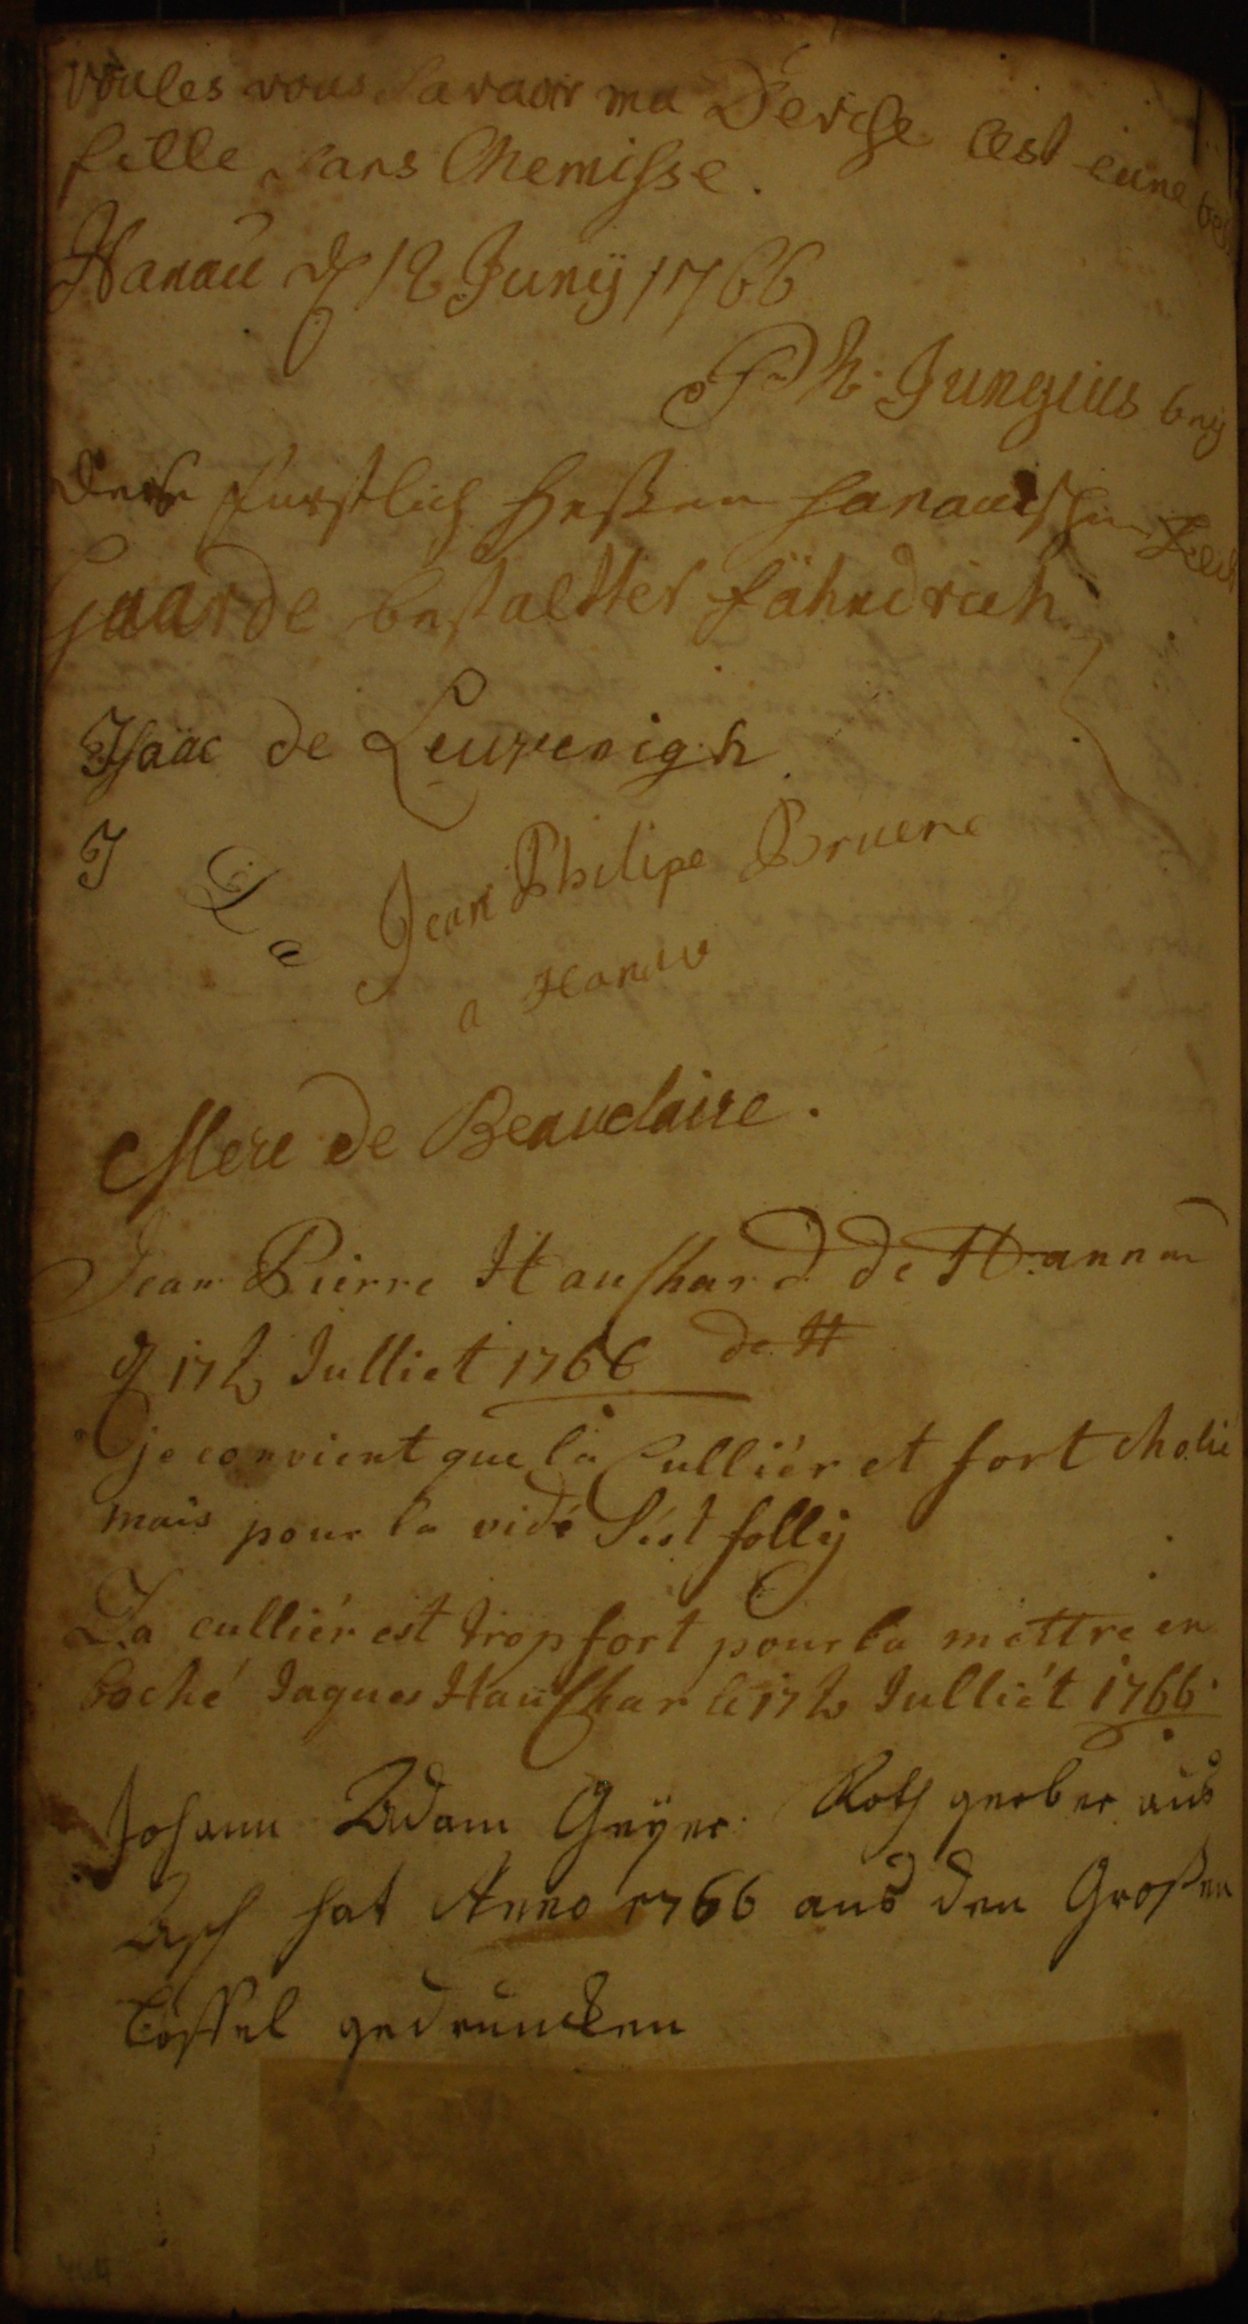 voules vous Savaoir ma Devise Cest eune bel
fille Sans Chemisse.
Hanau d 12 Junÿ 1766
Ph. Jungius beÿ
der fürstlich Heßen Hanauischen
Gaarde bestaldter fähndrich
Isaac de Leuvenigh
J
D
e
Jean Philipe Bruere
a Hanau
Mere de Beauclaire.
Jean Pierre Haushard de Hannau
d 17t Julliet 1766 de H
je convient que la Culliér et fort cholie
mais pour la vidé S'est folly
La culliér est trop fort pour la mettre en
boché Jaques Haushar le 17t Julliét 1766.
Johann Adam Geÿer Rothgerber aus
Asch hat Anno 1766 aus den Großen
Löffel gedruncken